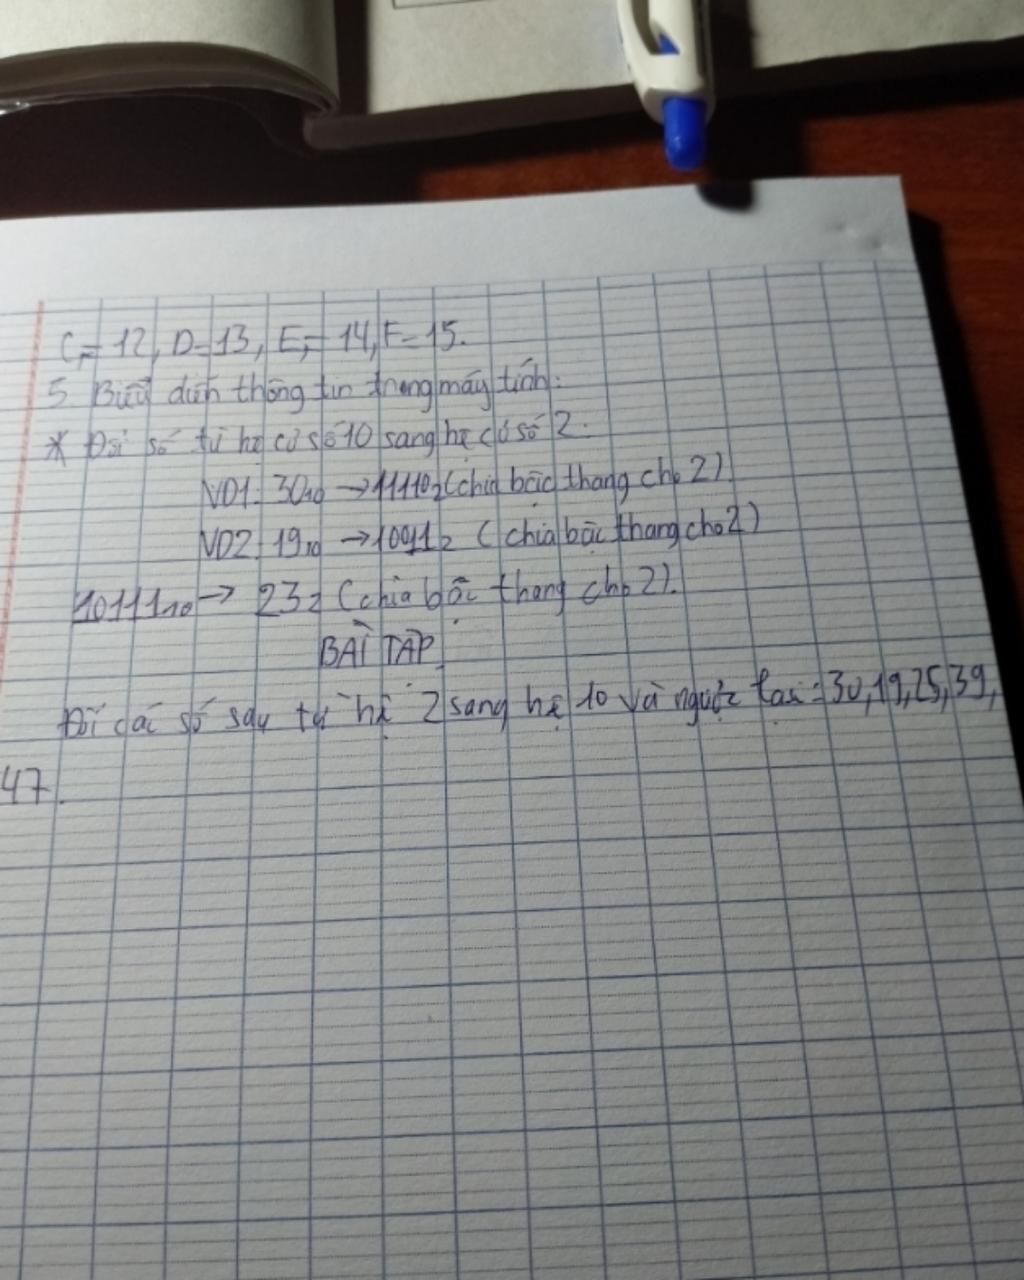 C = 12, D = 13, E = 14, F = 15.
5 Biểu diễn thông tin trong máy tính:
* Đổi số từ hệ cơ số 10 sang hệ cơ số 2.
VD1. 30₁₀ → 11110₂ (chia bậc thang cho 2)
VD2. 19₁₀ → 10011₂ (chia bậc thang cho 2)
10111₁₀ → 23₂ (chia bậc thang cho 2).
BÀI TẬP
Đổi các số sau từ hệ 2 sang hệ 10 và ngược lại: 30, 19, 25, 39,
47.